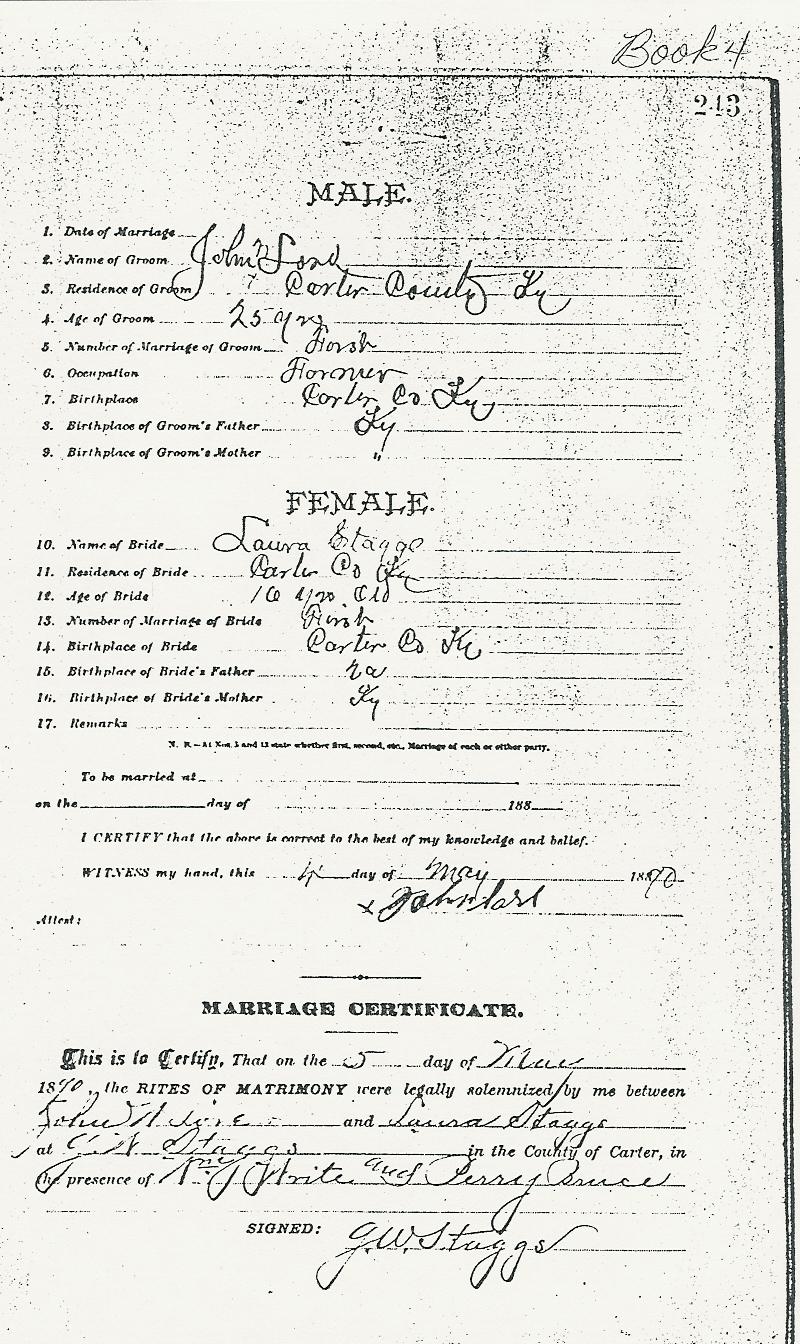 Book 4
243
MALE.
1. Date of Marriage
2. Name of Groom John
3. Residence of Groom Carter County Ky
4. Age of Groom 25 yrs
5. Number of Marriage of Groom First
6. Occupation Farmer
7. Birthplace Carter Co Ky
8. Birthplace of Groom's Father Ky
9. Birthplace of Groom's Mother "
FEMALE.
10. Name of Bride Laura Staggs
11. Residence of Bride Carter Co Ky
12. Age of Bride 16 yrs Old
13. Number of Marriage of Bride First
14. Birthplace of Bride Carter Co Ky
15. Birthplace of Bride's Father Va
16. Birthplace of Bride's Mother Ky
17. Remarks
N. B.—At Nos. 5 and 13 state whether first, second, etc., Marriage of each or either party.
To be married at
on the day of 188
I CERTIFY that the above is correct to the best of my knowledge and belief.
WITNESS my hand, this 4 day of May 1890
x John
Attest:
MARRIAGE CERTIFICATE.
This is to Certify, That on the 5 day of May
1890, the RITES OF MATRIMONY were legally solemnized by me between
John and Laura Staggs
at Staggs in the County of Carter, in
the presence of Write and Perry Bruce
SIGNED: G.W. Staggs